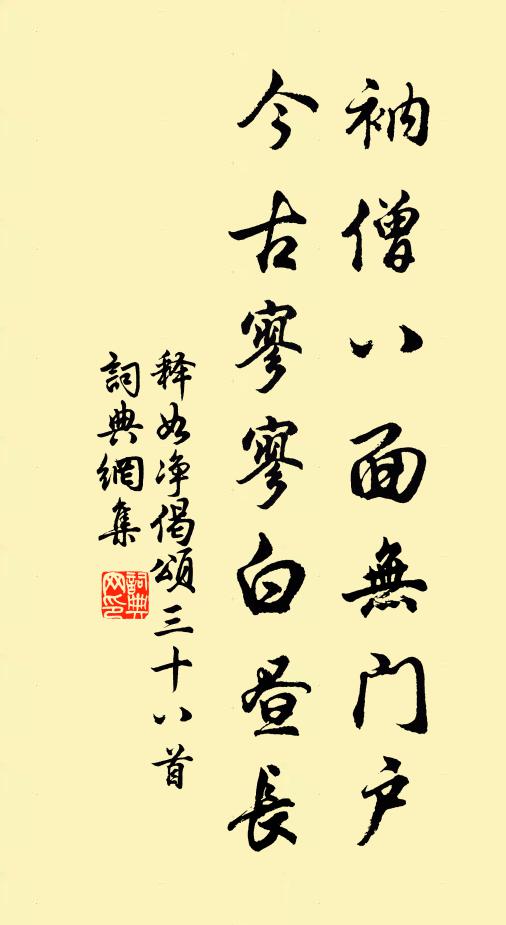 衲僧八面無门户
今古寥寥白昼長
释如净偈頌三十八首
詞典網集
詞典网印